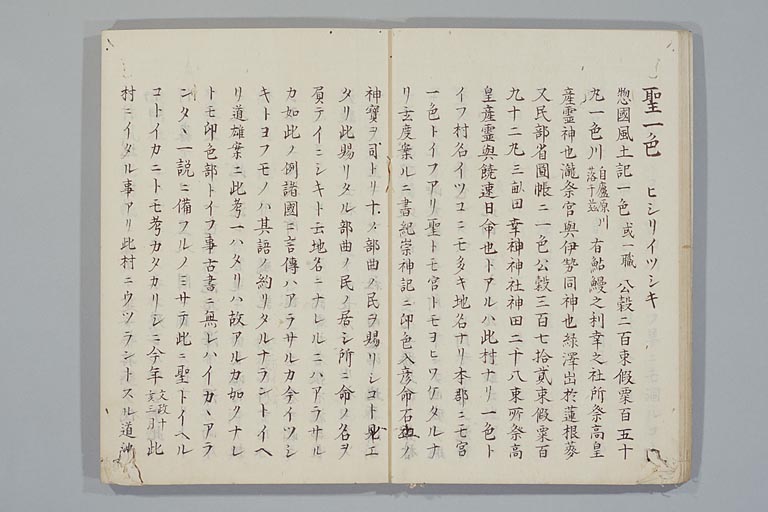 聖一色 ヒシリイツシキ
惣國風土記一色 或一職 公穀二百束假粟百五十
九一色川 自廬原川落于茲 有鮎鰻之利幸之社所祭高皇
産霊神也瀧祭宮與伊勢同神也緑澤出於蓮根蓼
又民部省圖帳ニ一色公穀三百七拾貳束假粟百
九十二丸三畝田幸神神社神田二十八束所祭高
皇産霊與饒速日命也トアルハ此村ナリ一色ト
イフ村名イツコニモ多キ地名ナリ本郡ニモ宮
一色トイフアリ聖トモ宮トモヨヒワケタルナ
リ玄度案ルニ書紀崇神記ニ印色入彦命石上ノ
神寳ヲ司トリ十ヶ部曲ノ民ヲ賜リシコト見エ
タリ此賜リタル部曲ノ民ノ居シ所ニ命ノ名ヲ
負テイニシキト云地名ニナレルニハアラサル
カ如此ノ例諸國ニ言傳ハアラサルカ今イツシ
キトヨフモノハ其語ノ約リタルナラントイヘ
リ道雄案ニ此考一ハタリハ故アルカ如クナレ
トモ印色部トイフ事古書ニ無レハイカヽアラ
ンタヽ一説ニ備フルノミサテ此ニ聖トイヘル
コトイカニトモ考カタカリシニ今年 文政十亥三月 此
村ニイタル事アリ此村ニウツラントスル道